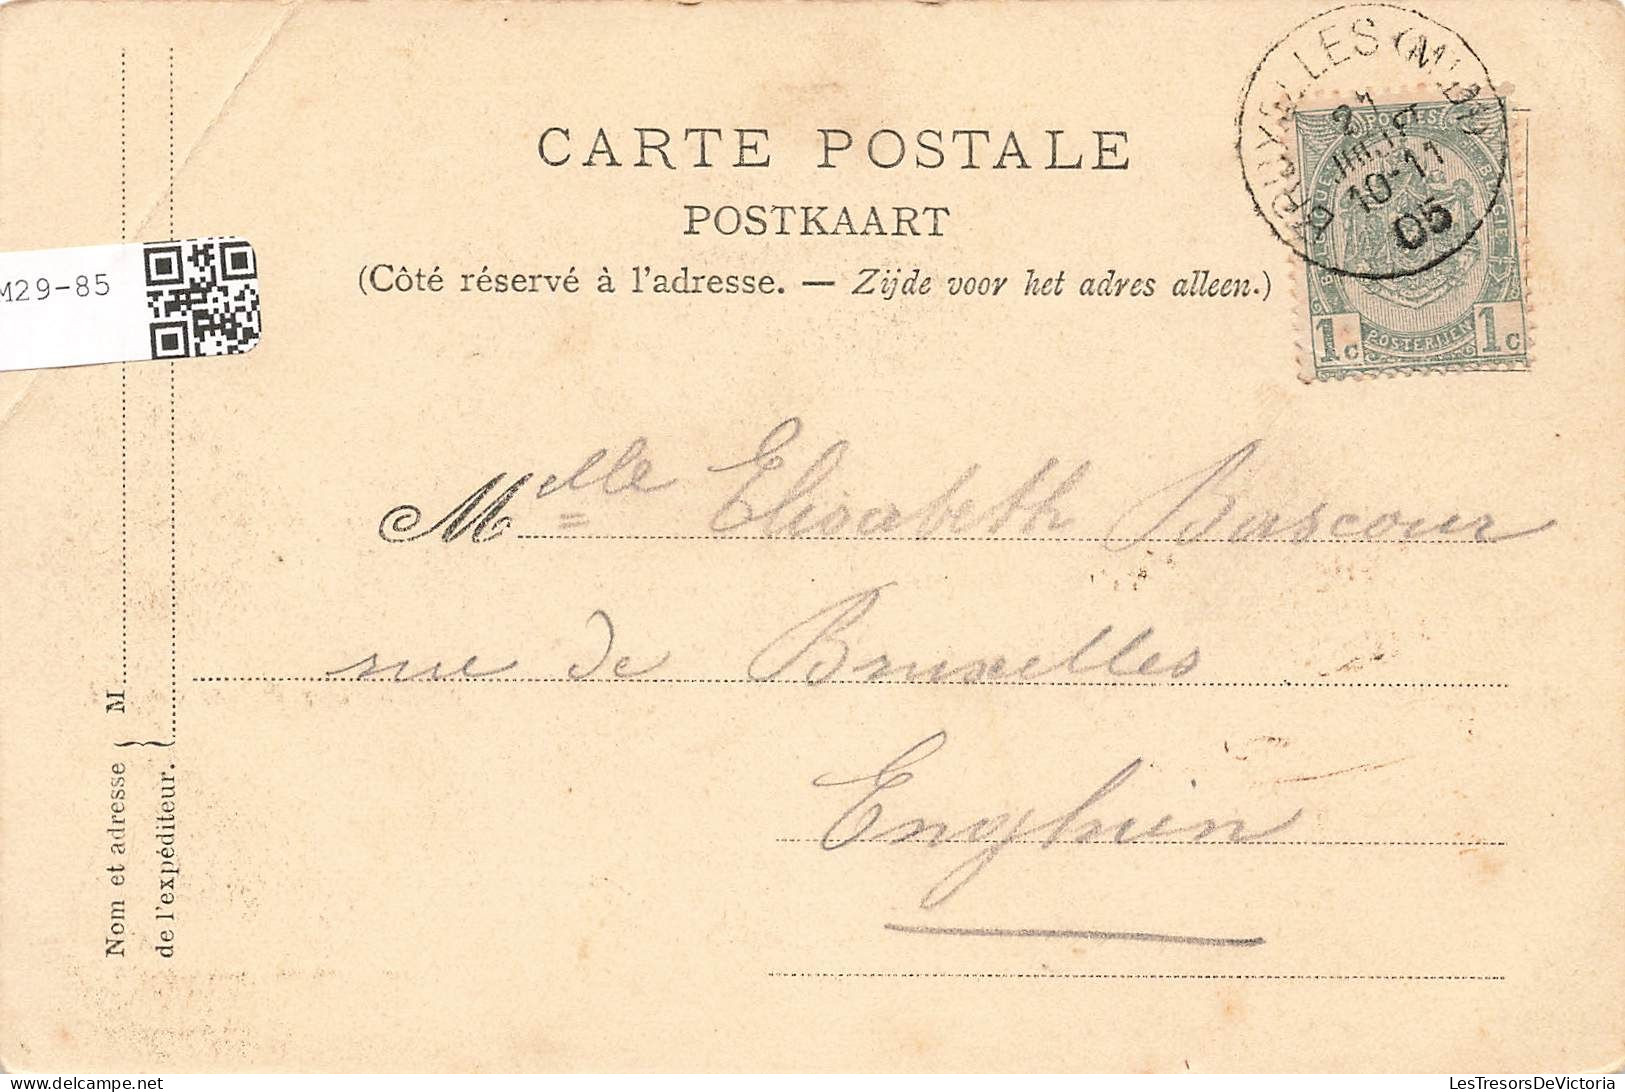 CARTE POSTALE
POSTKAART
(Côté réservé à l'adresse. — Zijde voor het adres alleen.)
M29-85
BRUXELLES (MIDI)
21
JUIL
10-11
05
POSTES
BELGIQUE BELGIE
1c POSTERIJEN 1c
Melle Elisabeth Bascour
rue de Bruxelles
Enghien
Nom et adresse } M
de l'expéditeur.
LesTresorsDeVictoria